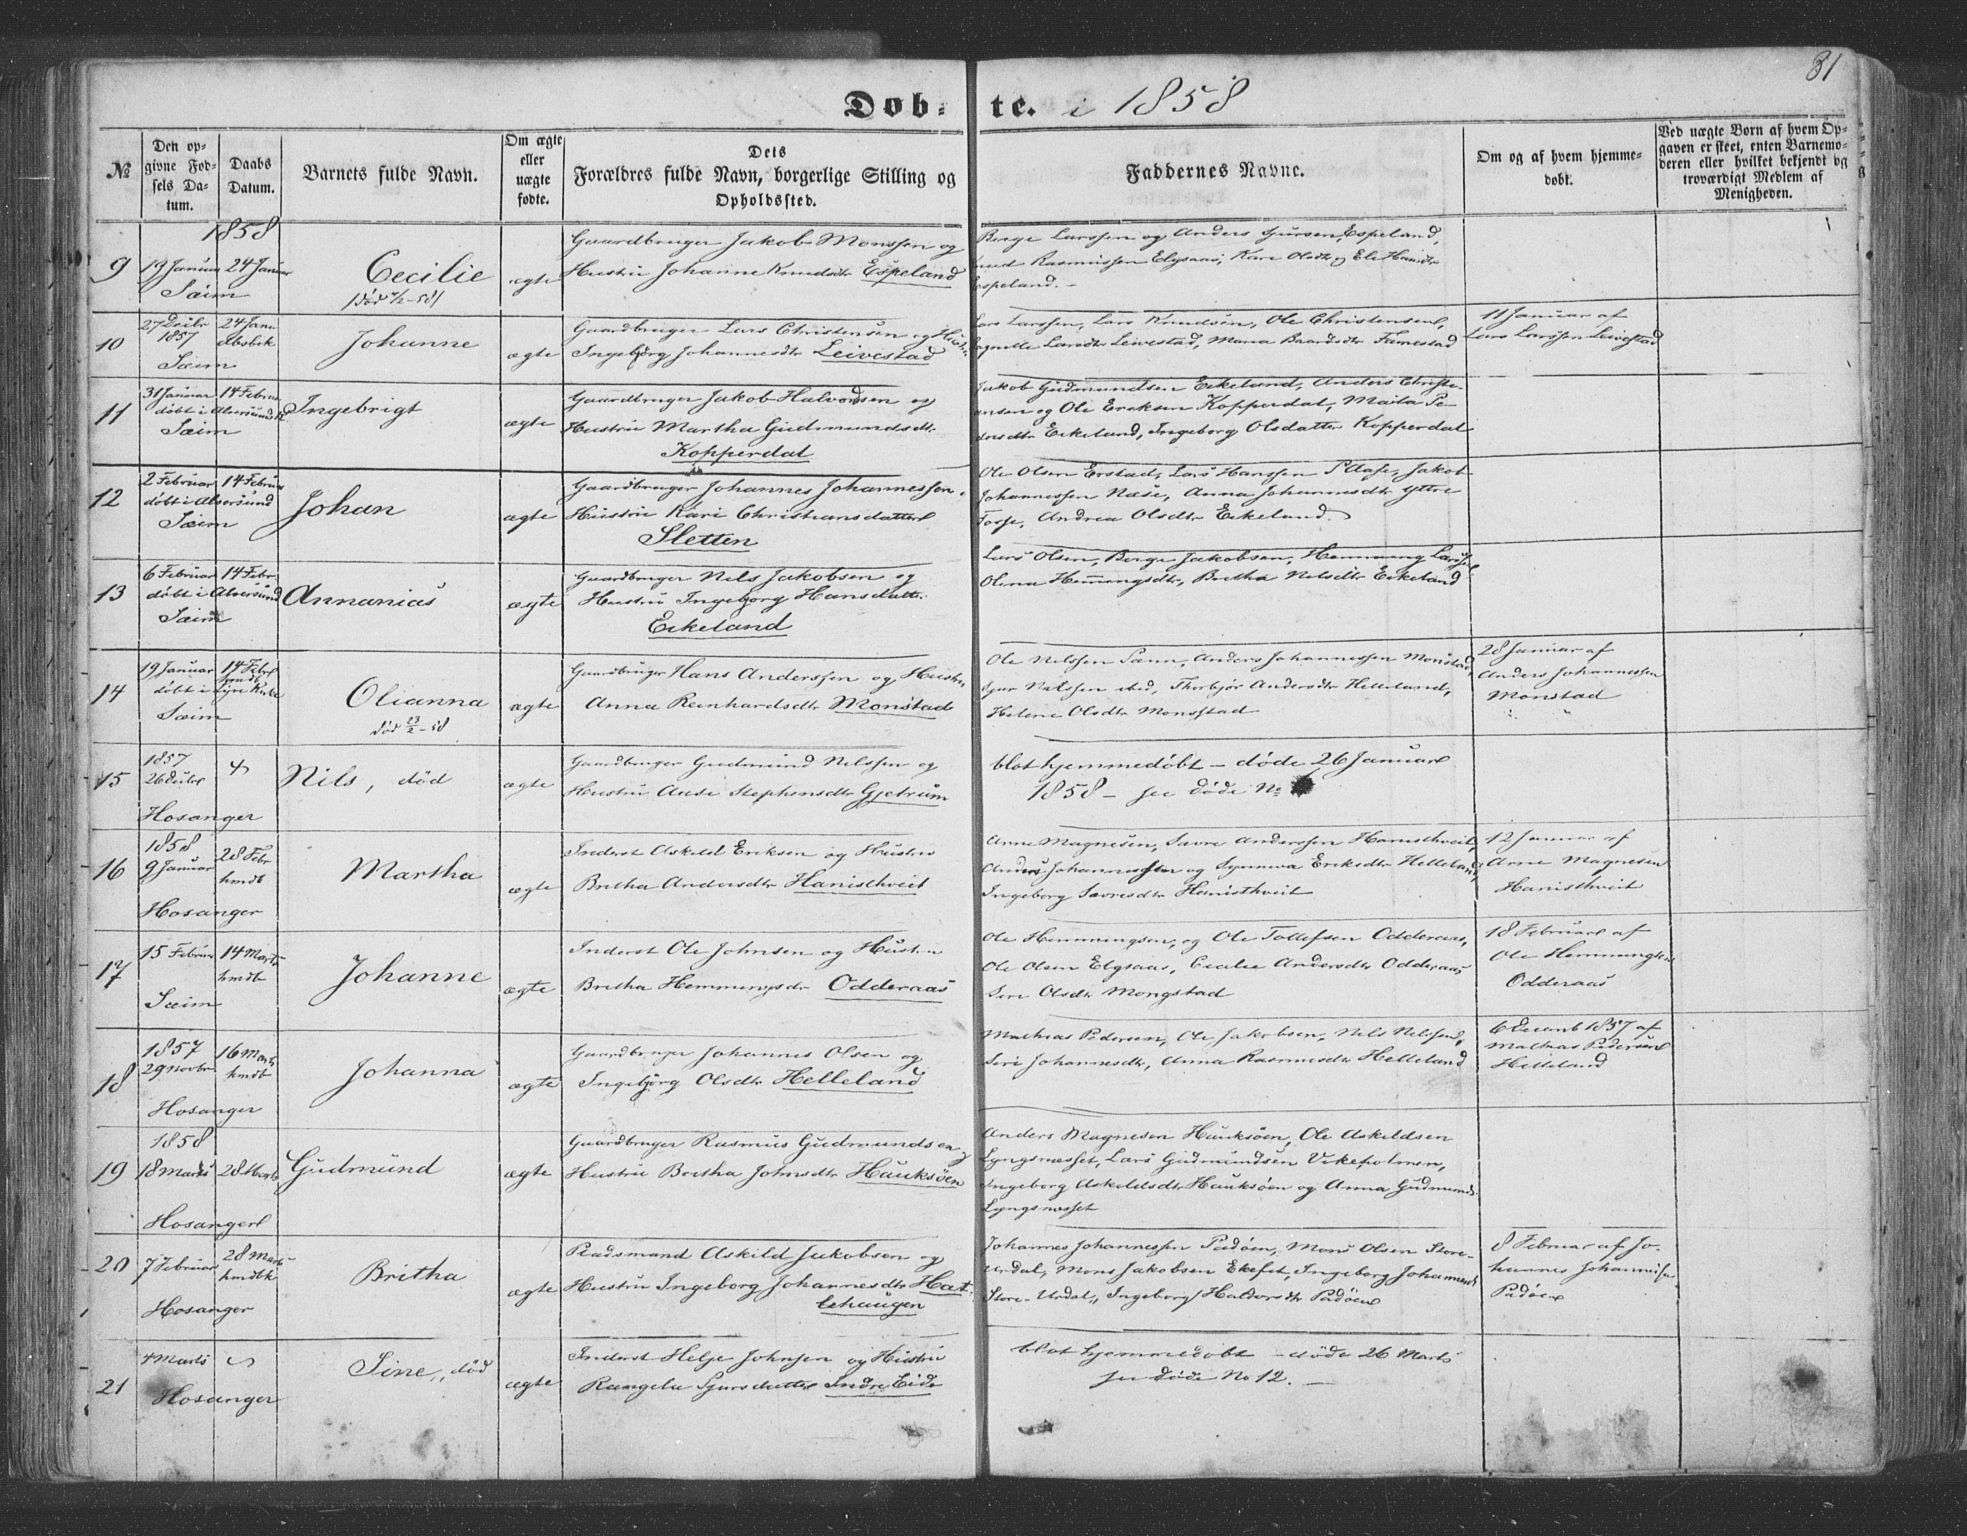 81
Døb- te. i 1858
№
Den op-
givne Fød-
sels Da-
tum.
Daabs
Datum.
Barnets fulde Navn.
Om ægte
eller
uægte
fødte.
Dets
Forældres fulde Navn, borgerlige Stilling og
Opholdssted.
Faddernes Navne.
Om og af hvem hjemme-
døbt.
Ved uægte Børn af hvem Op-
gaven er skeet, enten Barnemo-
deren eller hvilket bekjendt og
troværdigt Medlem af
Menigheden.
1858
9 19 Januar 24 Januar Cecilie ægte
Sæim
død 4/2-58
Gaardbruger Jakob Monssen og
Hustru Johanne Knudsdtr Espeland
Berge Larssen og Anders Sjursen, Espeland,
Knud Rasmussen Elysaas, Kare Olsdtr og Eli Hansdtr
Espeland.-
10 27 Decbr 24 Janu Johanne ægte
1857
Sæim
Gaardbruger Lars Christensen og Hustru
Ingeborg Johannesdtr Leivestad
Lars Larssen, Lars Knudsen, Ole Christensen,
Larsdtr Leivestad, Maria Baardsdtr Famestad
11 Januar af
Lars Larssen Leivestad
11 31 Januar 14 Februar Ingebrigt ægte
døbt i Alversund K
Sæim
Gaardbruger Jakob Halvordsen og
Hustru Martha Gudmundsdtr
Kopperdal
Jakob Gudmundsen Eikeland, Anders Christi-
ansen og Ole Eriksen Kopperdal, Maita Pe-
dersdtr Eikeland, Ingeborg Olsdatter Kopperdal
12 2 Februar 14 Februar Johan ægte
døbt i Alversund
Sæim
Gaardbruger Johannes Johannessen.
Hustru Kari Christiansdatter
Sletten
Ole Olsen Erstad, Lars Hanssen Jakob
Johannessen Næse, Anna Johannesdtr Yttre
Fosse, Andrea Olsdtr Eikeland.
13 6 Februar 14 Febr Annanias ægte
døbt i Alversund
Sæim
Gaardbruger Nils Jakobsen og
Hustru Ingeborg Hansdatter.
Eikeland
Lars Olsen, Berge Jakobsen, Hemming Larssen
Olena Hemmingsdtr, Britha Nilsdtr Eikeland
14 19 Januar 14 Febr Olianna ægte
hmdb
døbt i Lyre Kirke
Sæim
død 23/2-58
Gaardbruger Hans Anderssen og Hustru
Anna Reinhardsdtr Monstad
Ole Nilssen Sann, Anders Johannessen Monstad,
Sjur Nilssen ibid, Thorbjør Andersdtr Helleland,
Helene Olsdtr Monsstad
28 Januar af
Anders Johannessen
Monstad
1857
15 26 Decbr Nils, død ægte
Hosanger
Gaardbruger Gudmund Nilssen og
Hustru Anse Stephensdtr Gjetrum
blot hjemmedøbt – døde 26 Januar
1858 – see døde №
1858
16 9 Januar 28 Febr Martha ægte
hmdb
Hosanger
Inderst Askild Eriksen og Hustru
Britha Andersdtr Hanisthveit
Arne Magnesen, Savre Anderssen Hanisthveit,
Anders Johannessen og Synneva Eriksdtr Helleland,
Ingeborg Savresdtr Hanisthveit
12 Januar af
Arne Magnesen
Hanisthveit
17 15 Februar 14 Marts Johanne ægte
hmdb
Sæim
Inderst Ole Johnsen og Hustru
Britha Hemmingsdr Odderaas
Ole Hemmingsen, og Ole Tollefsen Odderaas,
Ole Olsen Elysaas, Cecilie Andersdtr Odderaas
Siri Olsdtr Mongstad
18 Februar af
Ole Hemmingsen
Odderaas
1857
18 29 Novbr 16 Marts Johanna ægte
hmdb
Hosanger
Gaardbruger Johannes Olsen og
Ingebjørg Olsdtr Helleland
Mathias Pedersen, Ole Jakobsen, Nils Nilssen,
Siri Johannesdtr, Anna Rasmusdtr Helleland
6 Decemb 1857 af
Mathias Pedersen
Helleland
1858
19 18 Marts 28 Marts Gudmund ægte
Hosanger
Gaardbruger Rasmus Gudmundsen og
Hustru Britha Johnsdtr Hauksøen
Anders Magnesen Hauksøen, Ole Askildsen
Lyngsnæsset, Lars Gudmundsen Vikeholmen,
Ingeborg Askildsdtr Hauksøen og Anna Gudmunds-
Lyngsnæsset
20 7 Februar 28 Marts Britha ægte
hmdbk
Hosanger
Pladsmand Askild Jakobsen og
Hustru Ingeborg Johannesdtr Hat-
lehaugen
Johannes Johannessen Padøen, Mons Olsen Store-
Urdal, Mons Jakobsen Ekeset, Ingeborg Johannesd
Store-Urdal, Ingeborg Haldorsdtr Padøen
8 Februar af Jo-
hannes Johannessen
Padøen
21 4 Marts Sine, død ægte
Hosanger
Inderst Helje Johnsen og Hustru
Rangela Sjursdatter Indre Eide
blot hjemmedøbt – døde 26 Marts
see døde № 12. –